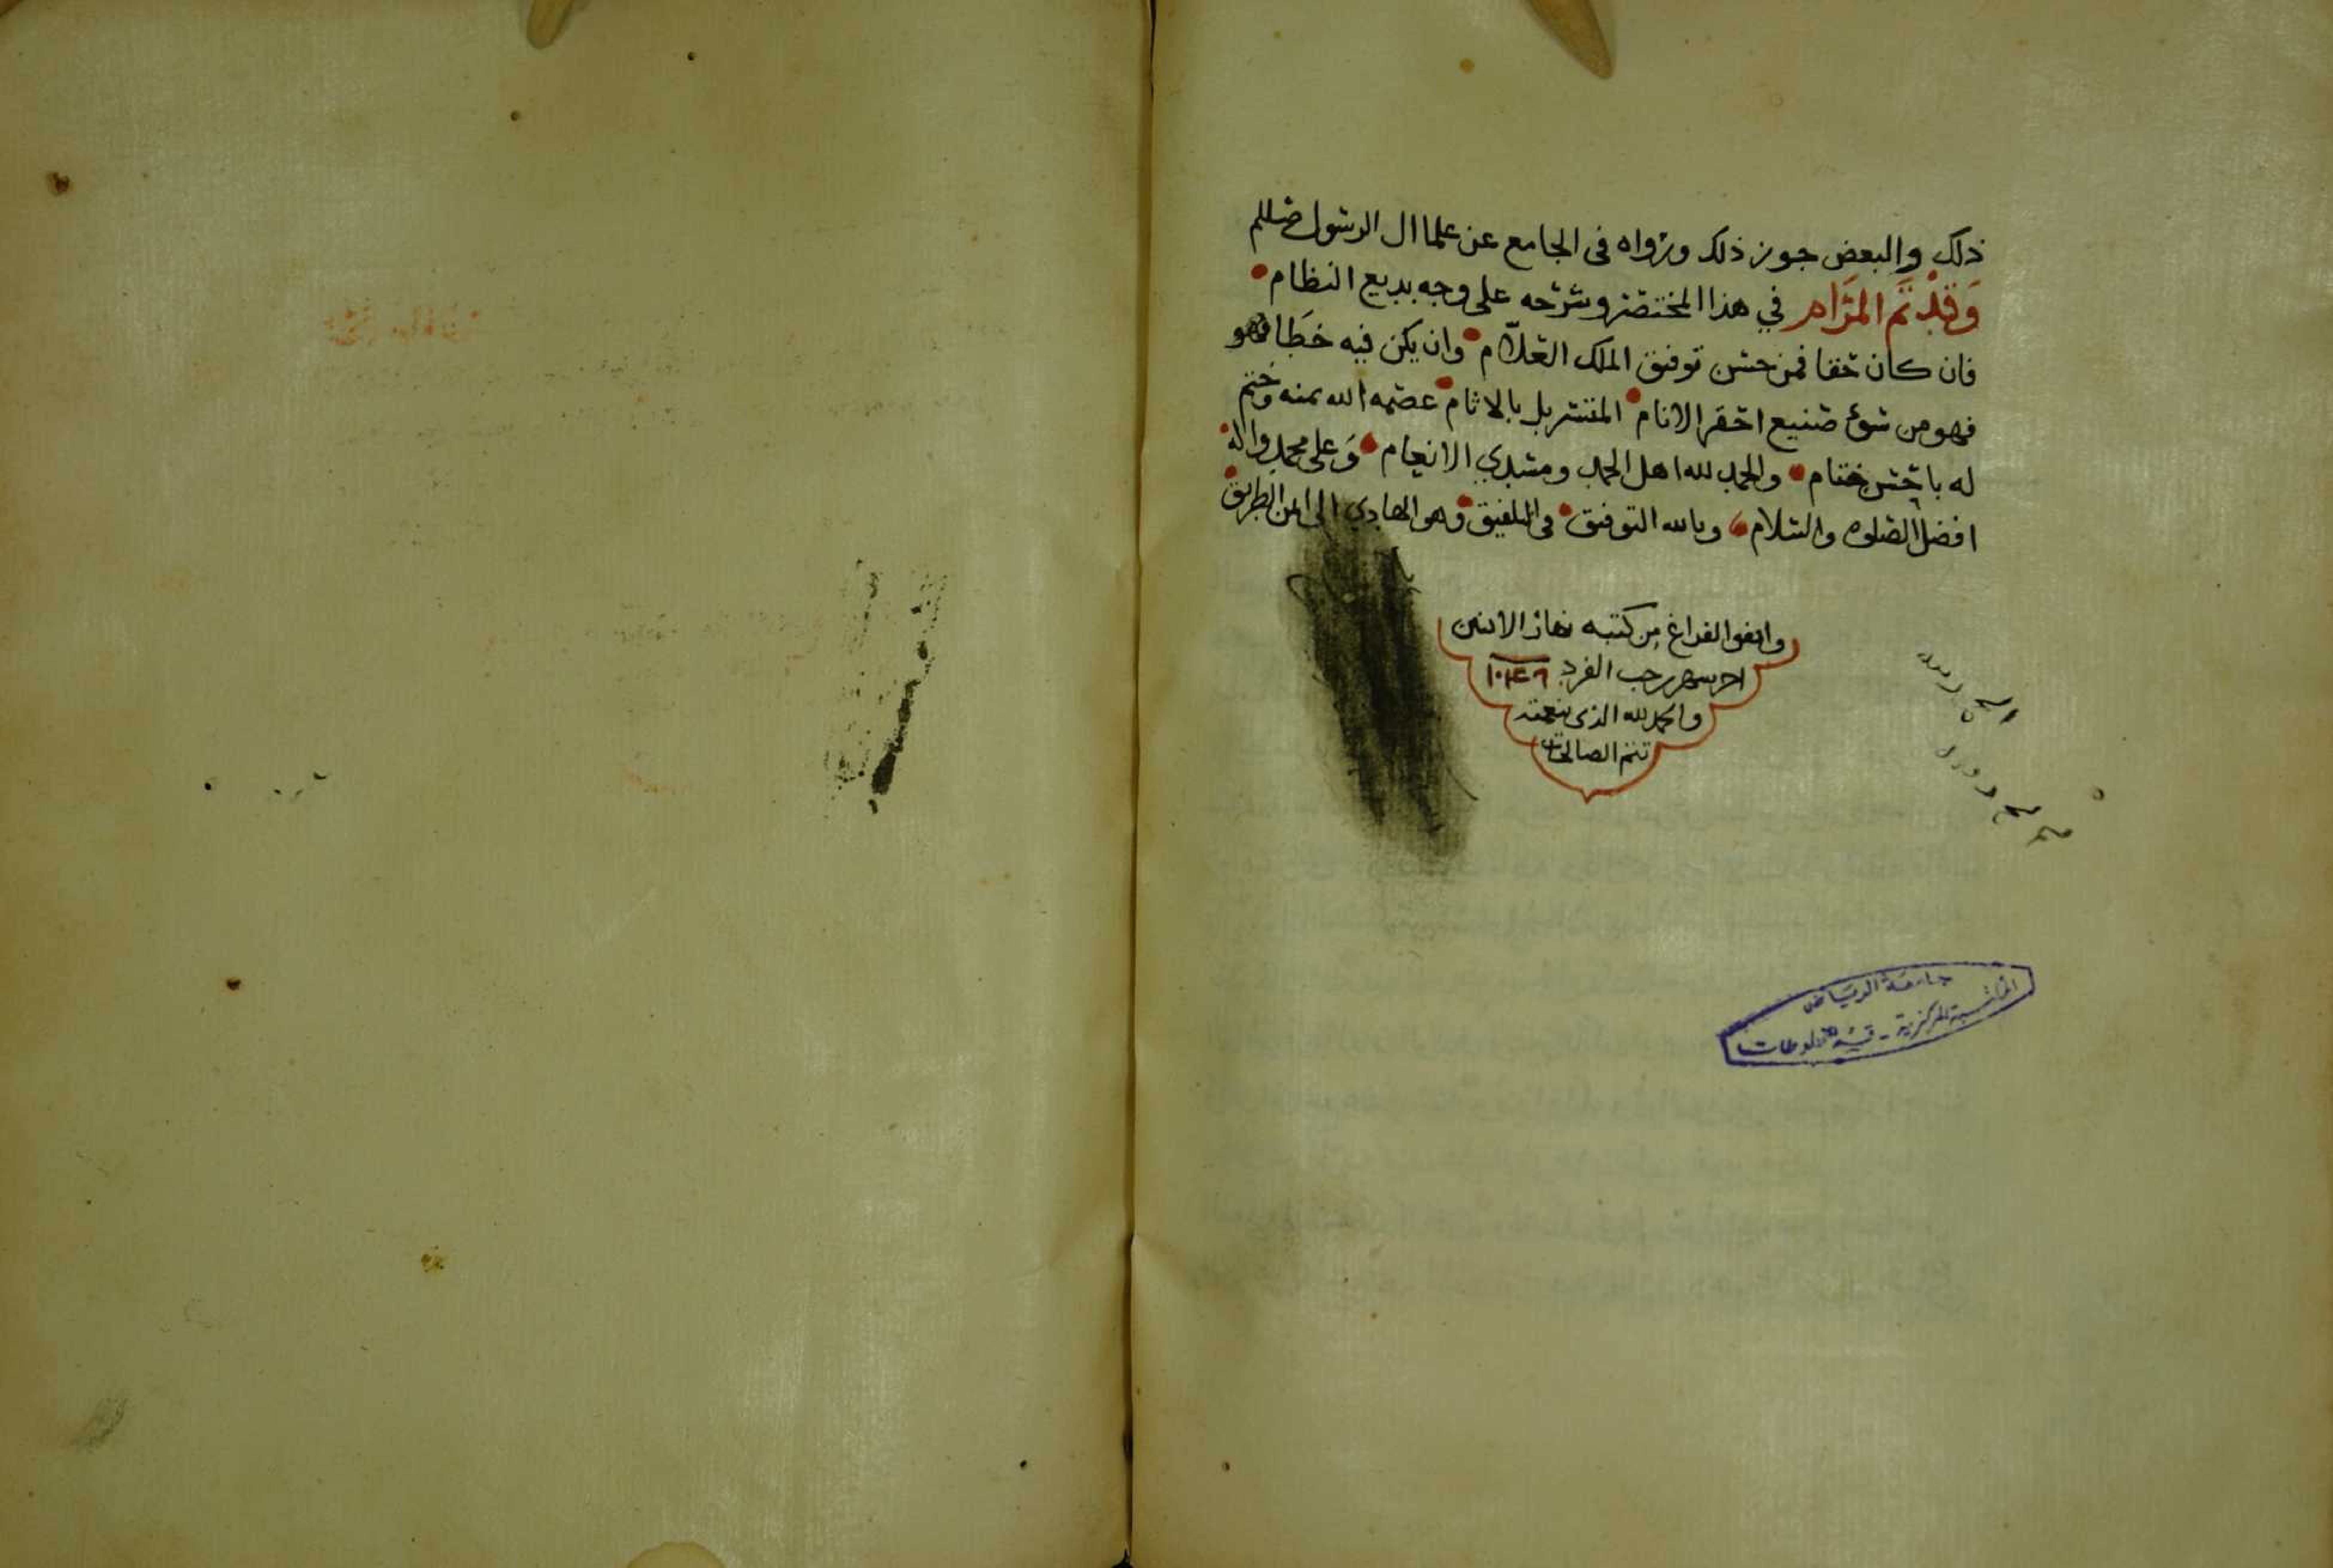 ذلك والبعض جوز ذلك ورواه فى الجامع عن علما ال الرسول صللم
وَقَدْ تَمَّ المَرَام في هذا المختصر وشرحه على وجه بديع النظام
فان كان حقا فمن حسن توفيق الملك العلّام وان يكن فيه خطَا فهو
فهو من سوء صنيع احقر الانام المتسربل بالاثام عصمه الله بمنه وختم
له باحسن ختام والحمد لله اهل الحمد ومسدي الانعام وَعلى محمد واله
افضل الصلوه والسلام وبالله التوفيق فى التلفيق وهو الهادي الى ايمن الطريق
واتفق الفراغ من كتبه نهار الاثنين
اخر شهر رجب الفرد ١٠٤٩
والحمد لله الذى بنعمته
تتم الصالحات
جامعة الرياض
المكتبة المركزية - قسم المخطوطات